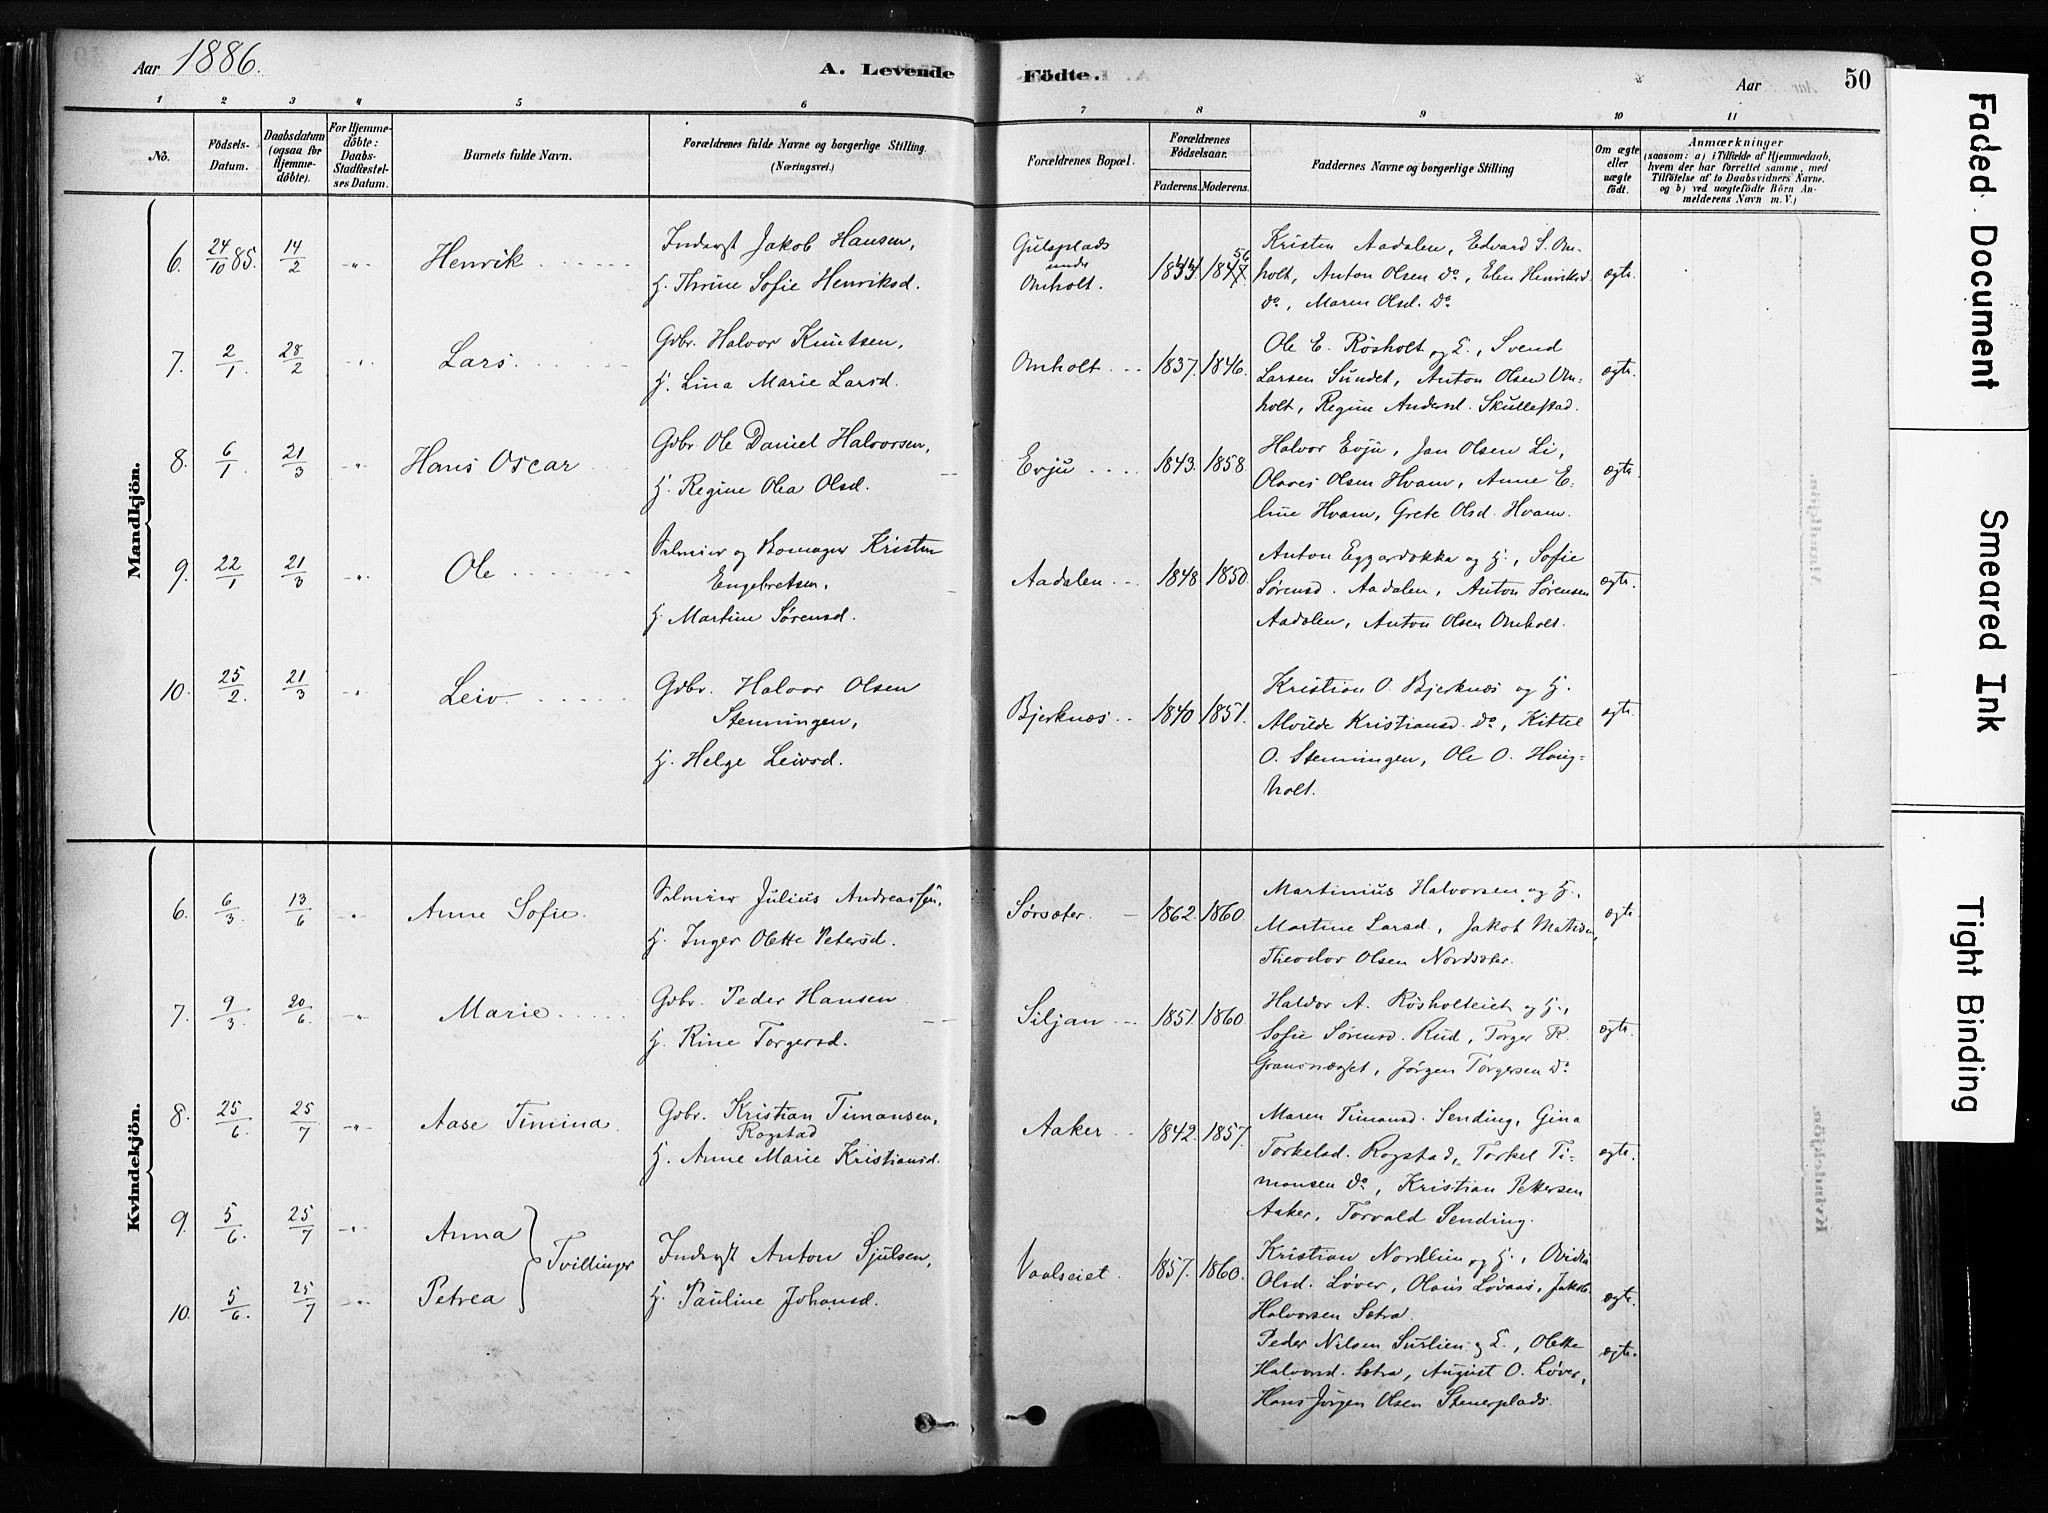 Aar 1886.
A. Levende Födte.
Aar
50
1 2 3 4 5 6 7 8 9 10 11
No.
Födsels-
Datum.
Daabsdatum
(ogsaa for
Hjemme-
döbte).
For Hjemme-
döbte:
Daabs-
Stadfæstel-
ses Datum.
Barnets fulde Navn.
Forældrenes fulde Navne og borgerlige Stilling.
(Næringsvei.)
Forældrenes Bopæl.
Forældrenes
Födselsaar.
Faderens. Moderens.
Faddernes Navne og borgerlige Stilling
Om ægte
eller
uægte
födt.
Anmærkninger
(saasom: a) i Tilfælde af Hjemmedaab,
hvem der har forrettet samme, med
Tilföielse af to Daabsvidners Navne.
og b) ved uægtefödte Börn An-
melderens Navn m. V.)
Mandkjön.
6. 24/10 85. 14/2 -„- Henrik
Inderst Jakob Hansen,
H. Thrine Sofie Henriksd.
Gulsplads
under
Omholt.
Kristen Aadalen, Edvard S. Om-
holt, Anton Olsen Do, Elen Henriksd.
Do, Maren Olsd. Do
ægte.
7. 2/1. 28/2 -„- Lars.
Gbr. Halvor Knutsen,
H. Lina Marie Larsd.
Omholt 1837. 1846.
Ole E. Røsholt og H., Svend
Larsen Sundet, Anton Olsen Om-
holt, Regine Andersd. Skullestad.
ægte.
8. 6/1 21/3 -„- Hans Oscar
Gbr. Ole Daniel Halvorsen,
H. Regine Olea Olsd.
Evju 1843. 1858.
Halvor Evju, Jan Olsen Li,
Olaves Olsen Hvam, Anne E-
line Hvam, Grete Olsd. Hvam.
ægte
9. 22/1 21/3 -„- Ole
Selveier og Bomager Kristen
Engebretsen,
H. Martine Sørensd.
Aadalen 1848 1850.
Anton Eggardokka og H., Sofie
Sørensd. Aadalen, Anton Sørensen
Aadalen, Anton Olsen Omholt.
ægte.
10. 25/2. 21/3 -„- Leiv
Gbr. Halvor Olsen
Stenningen,
H. Helge Leivsd.
Bjerknæs 1840 1851.
Kristian O. Bjerknæs og H.
Alvilde Kristiansd. Do, Kittel
O. Stenningen, Ole O. Houg-
holt.
ægte.
Kvindekjön.
6. 6/3. 13/6 -„- Anne Sofie.
Selveier Julius Andreassen,
H. Inger Olette Petersd.
Sørsæter 1862 1860.
Martinius Halvorsen og H.,
Martine Larsd., Jakob Mathisen,
Theodor Olsen Nordsæter.
ægte
7. 9/3. 20/6 -„- Marie
Gbr. Peder Hansen
H. Rine Torgersd.
Siljan 1851. 1860.
Haldor A. Røsholteiet og H.,
Sofie Sørensd. Rud, Torger R.
Jørgen Torgersen Do
ægte.
8. 25/6. 25/7 -„- Aase Timina.
Gbr. Kristian Timansen,
Rogstad
H. Anne Marie Kristiansd.
Aaker 1842. 1857.
Maren Timansd. Sending, Gina
Torkelsd. Rogstad, Torkel Ti-
mansen Do, Kristian Pettersen
Aaker, Torvald Sending.
ægte.
9. 5/6. 25/7 -„- Anna
Tvillinger
10. 5/6. 25/7 -„- Petrea
Inderst Anton Sjulsen,
H. Pauline Johansd.
Vaalseiet. 1857. 1860.
Kristian Nordlien og H.,
Olsd. Løver, Olaus Løvaas, Jakob
Halvorsen Sætra.
ægte.
Peder Nilsen Surlien og H., Olette
Halvorsd. Sætra, August O. Løver,
Hans Jørgen Olsen Stenerplads.
ægte.
Faded Document
Smeared Ink
Tight Binding